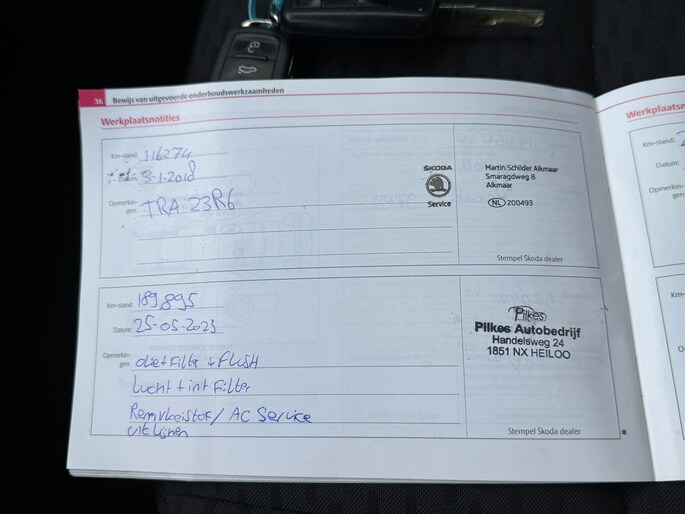 36 Bewijs van uitgevoerde onderhoudswerkzaamheden
Werkplaatsnotities
Km-stand: 116274
Datum: 3-1-2018
Opmerkin-
gen: TRA 23R6
ŠKODA
Service
Martin Schilder Alkmaar
Smaragdweg 8
Alkmaar
NL 200493
Stempel Škoda dealer
Km-stand: 189.895
Datum: 25-05-2023
Opmerkin-
gen: olie + Filter + Flush
Lucht + int Filter
Remvloeistof / AC Service
uitlijnen
Pilkes
Pilkes Autobedrijf
Handelsweg 24
1851 NX HEILOO
Stempel Škoda dealer
Werkplaatsn
Km-stand:
Datum:
Opmerkin-
gen:
Km-s